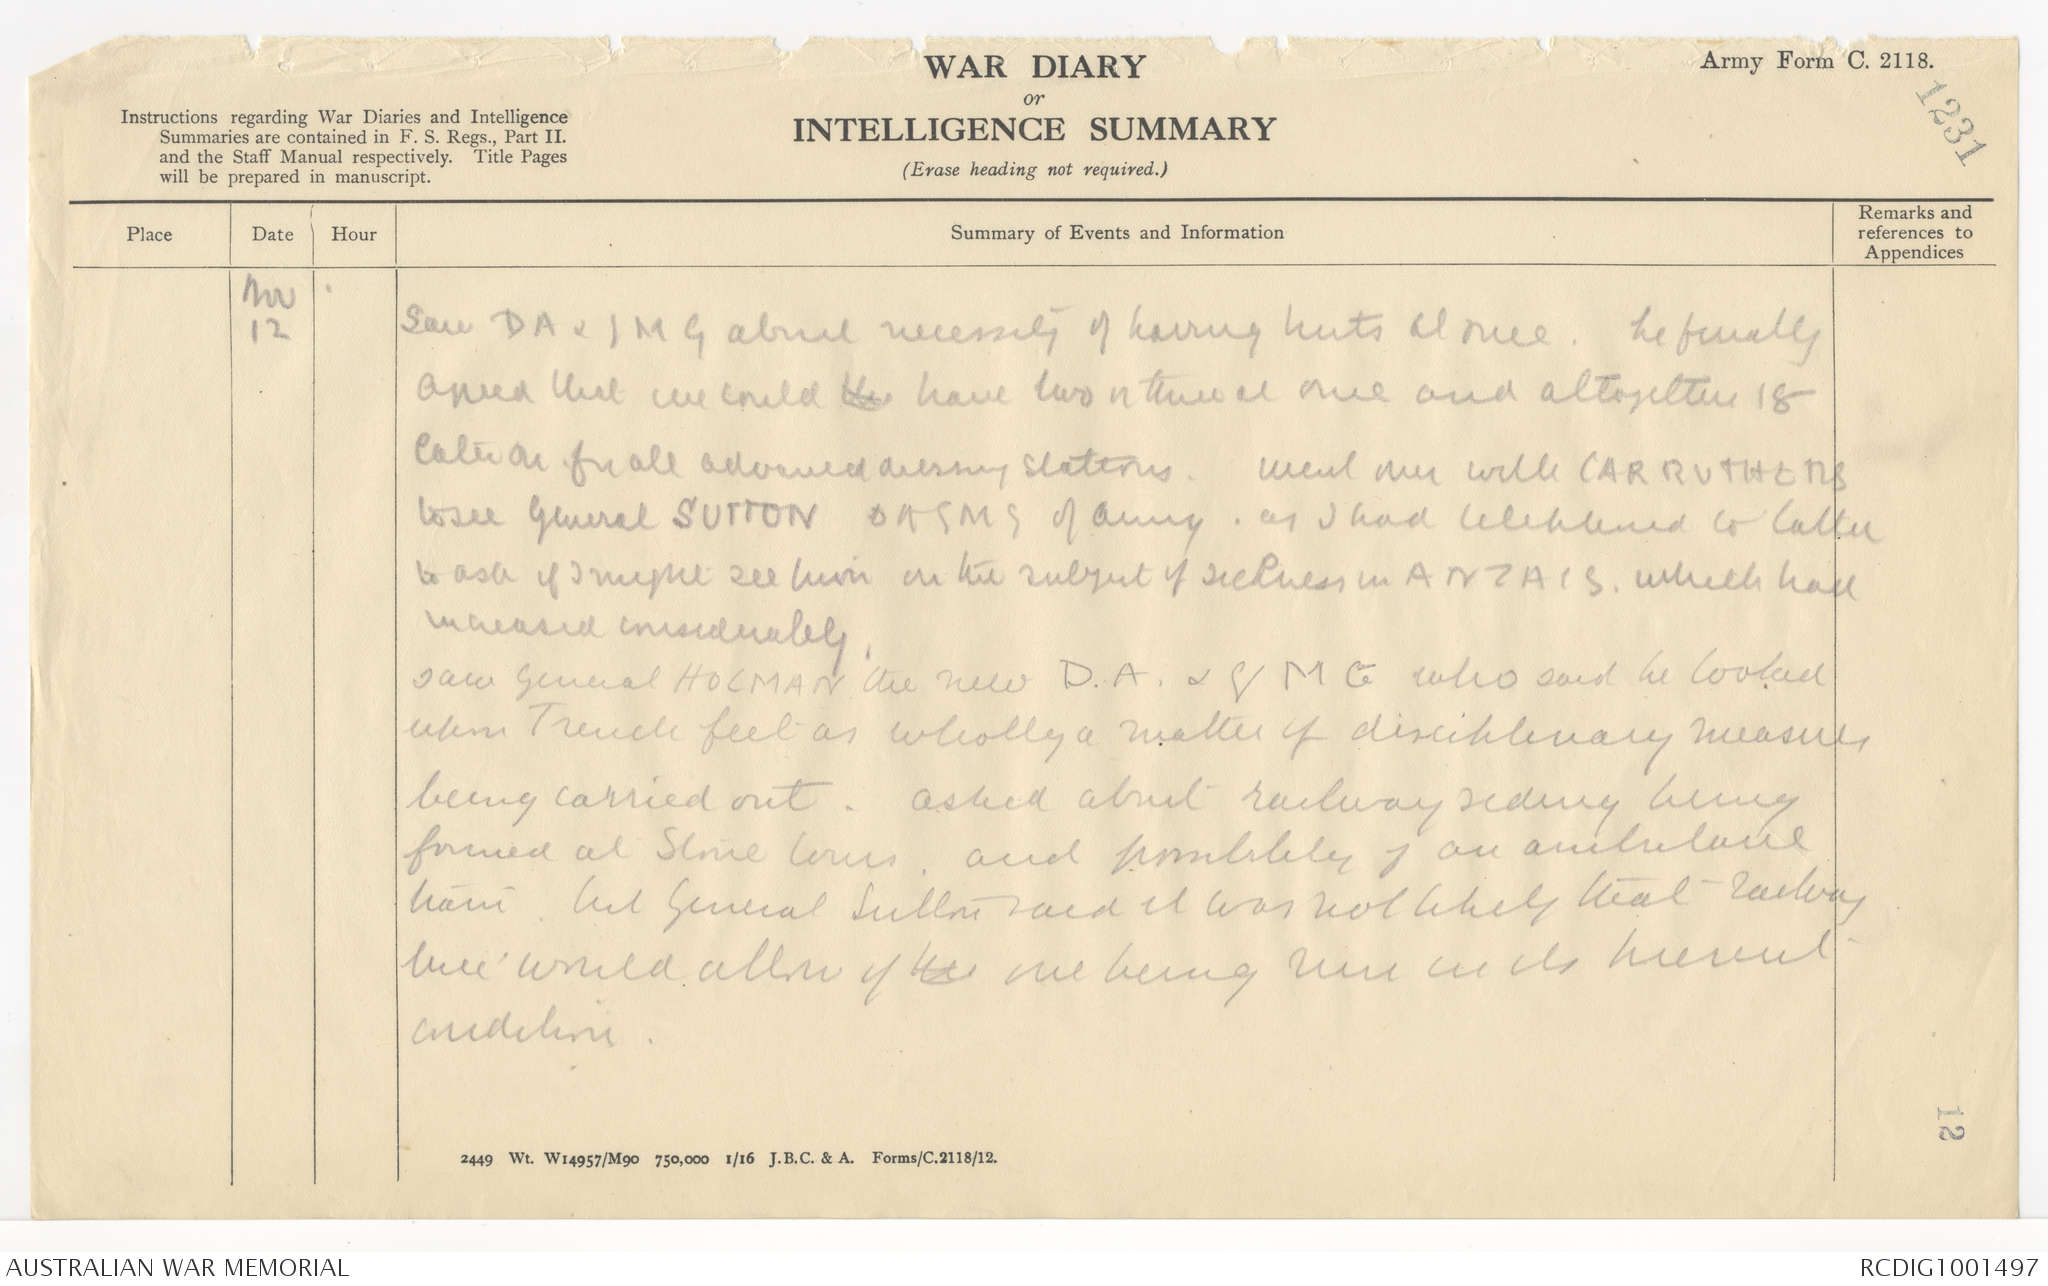 WAR DIARY
or
INTELLIGENCE SUMMARY
(Erase heading not required.)
Army Form C. 2118.
1231
Instructions regarding War Diaries and Intelligence
Summaries are contained in F. S. Regs., Part II.
and the Staff Manual respectively. Title Pages
will be prepared in manuscript.
Place
Date
Hour
Summary of Events and Information
Remarks and
references to
Appendices
Nov
12
Saw DA & QMG about necessity of having huts at once. he finally
agreed that we could have two or three at once and altogether 18
later on for all advanced dressing stations. went over with CARRUTHERS
to see General SUTTON DAQMG of army. as I had telephoned to latter
to ask if I might see him on the subject of sickness in ANZACS. which had
increased considerably.
saw General HOLMAN the new D.A. & QMG who said he looked
upon Trench feet as wholly a matter of disciplinary measures
being carried out. asked about railway siding being
formed at and possibility of an ambulance
train. but General Sutton said it was not likely that railway
line would allow of one being run in its present
condition.
2449 Wt. W14957/M90 750,000 1/16 J.B.C. & A. Forms/C.2118/12.
12
AUSTRALIAN WAR MEMORIAL
RCDIG1001497